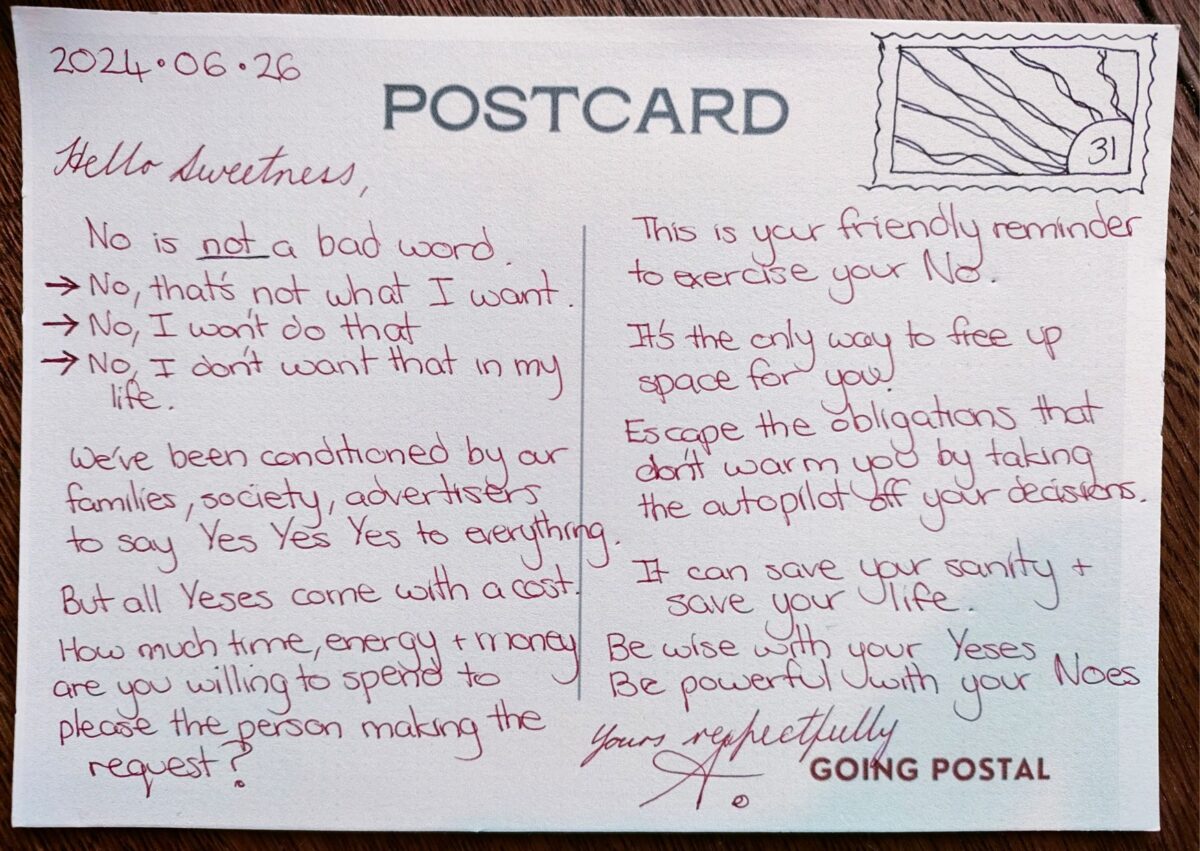 2024•06•26
POSTCARD
31
Hello Sweetness,
No is not a bad word.
→ No, that's not what I want.
→ No, I won't do that
→ No, I don't want that in my
life.
We've been conditioned by our
families, society, advertisers
to say Yes Yes Yes to everything.
But all Yeses come with a cost.
How much time, energy + money
are you willing to spend to
please the person making the
request?
This is your friendly reminder
to exercise your No.
It's the only way to free up
space for you.
Escape the obligations that
don't warm you by taking
the autopilot off your decisions.
It can save your sanity +
save your life.
Be wise with your Yeses
Be powerful with your Noes
Yours respectfully
A.
GOING POSTAL